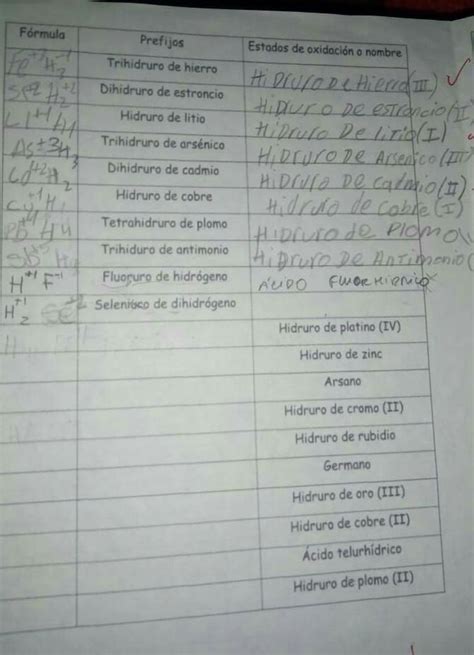 Fórmula Prefijos Estados de oxidación o nombre
Fe+3 H3-1 Trihidruro de hierro Hidruro De Hierro (III)
H2 Dihidruro de estroncio Hidruro De estroncio (I
Li+1 H1 Hidruro de litio Hidruro De litio (I)
As±3 H3 Trihidruro de arsénico Hidruro De Arsenico (III)
Cd+2 H2 Dihidruro de cadmio Hidruro De cadmio (II)
Cu+1 H1 Hidruro de cobre Hidruro de cobre (I)
Pb+4 H4 Tetrahidruro de plomo Hidruro de Plomo
Sb+5 Trihiduro de antimonio Hidruro De Antimonio (
H+1 F-1 Fluoruro de hidrógeno Ácido
H2+1 Seleniosco de dihidrógeno
Hidruro de platino (IV)
Hidruro de zinc
Arsano
Hidruro de cromo (II)
Hidruro de rubidio
Germano
Hidruro de oro (III)
Hidruro de cobre (II)
Ácido telurhídrico
Hidruro de plomo (II)